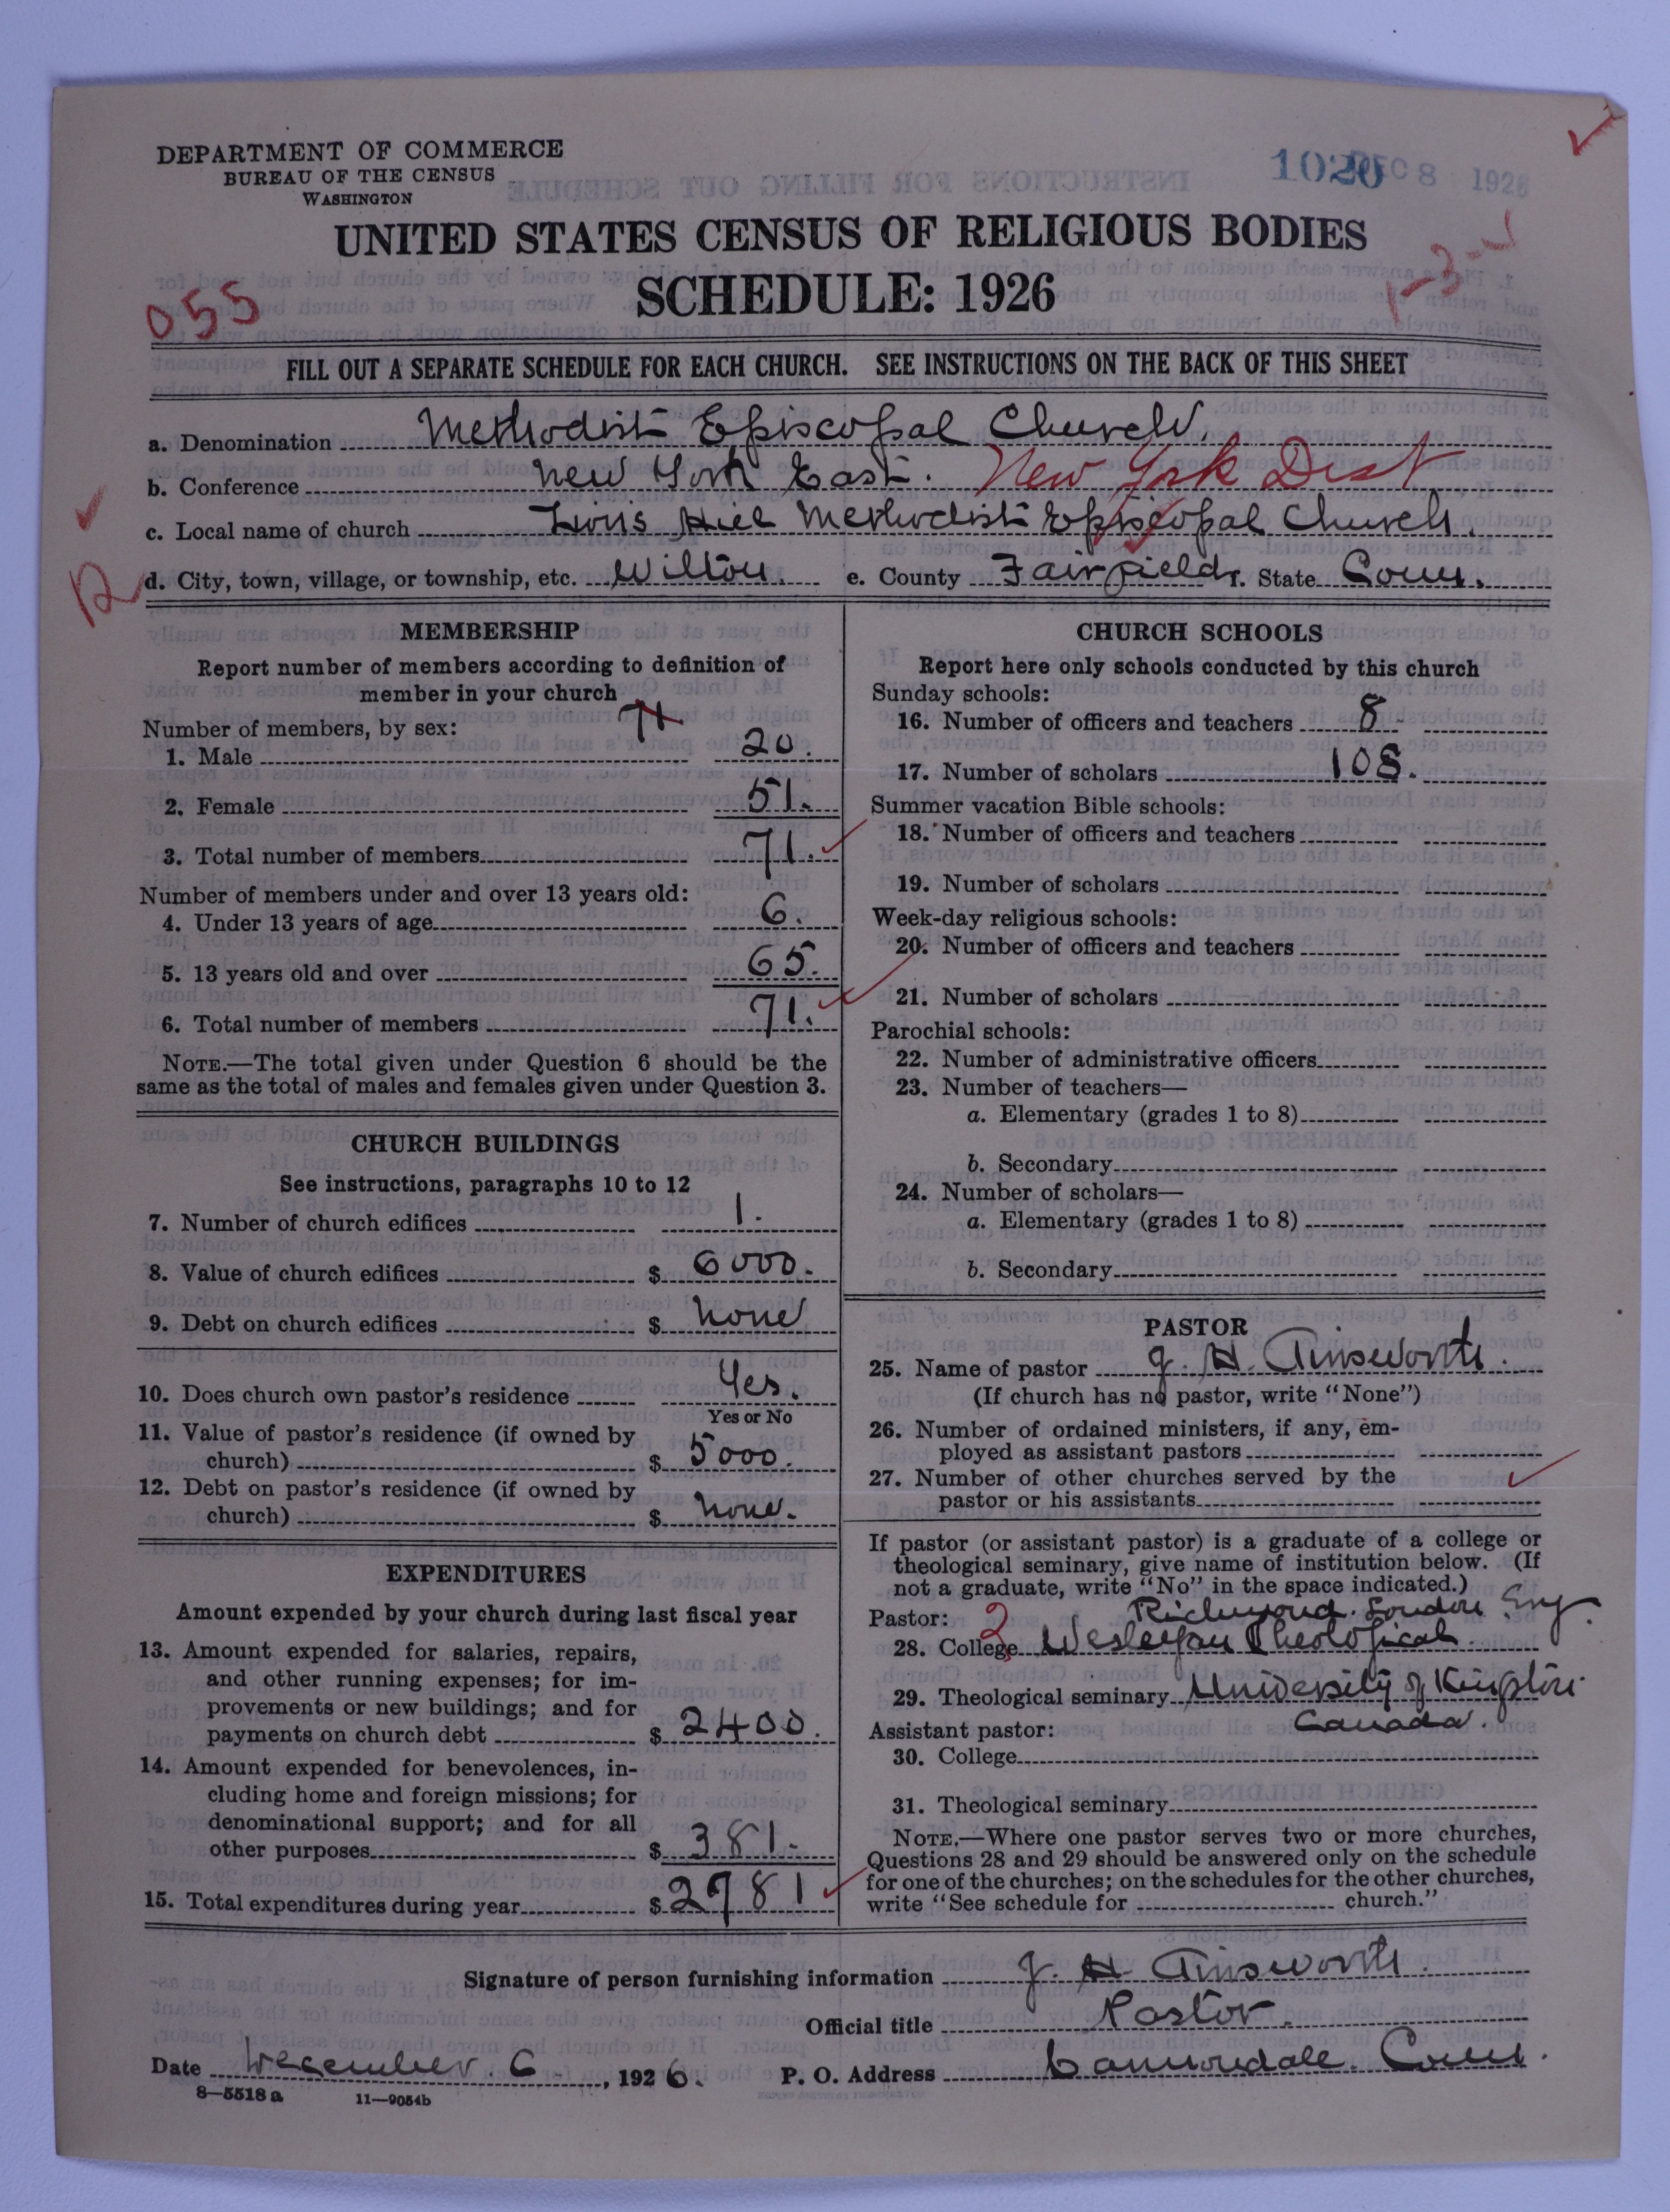 DEPARTMENT OF COMMERCE
BUREAU OF THE CENSUS
WASHINGTON
1020 DEC 8 1926
UNITED STATES CENSUS OF RELIGIOUS BODIES
SCHEDULE: 1926
055
1-3-
FILL OUT A SEPARATE SCHEDULE FOR EACH CHURCH. SEE INSTRUCTIONS ON THE BACK OF THIS SHEET
a. Denomination Methodist Episcopal Church.
b. Conference New York East. New York Dist
c. Local name of church Zions Hill Methodist Episcopal Church.
d. City, town, village, or township, etc. Wilton. e. County Fairfield f. State Conn.
R
MEMBERSHIP
Report number of members according to definition of
member in your church
71
Number of members, by sex:
1. Male 20.
2. Female 51.
3. Total number of members 71.
Number of members under and over 13 years old:
4. Under 13 years of age 6.
5. 13 years old and over 65.
6. Total number of members 71.
NOTE.—The total given under Question 6 should be the
same as the total of males and females given under Question 3.
CHURCH BUILDINGS
See instructions, paragraphs 10 to 12
7. Number of church edifices 1.
8. Value of church edifices $ 6000.
9. Debt on church edifices $ None
10. Does church own pastor's residence Yes.
Yes or No
11. Value of pastor's residence (if owned by
church) $ 5000.
12. Debt on pastor's residence (if owned by
church) $ None.
EXPENDITURES
Amount expended by your church during last fiscal year
13. Amount expended for salaries, repairs,
and other running expenses; for im-
provements or new buildings; and for
payments on church debt $ 2400.
14. Amount expended for benevolences, in-
cluding home and foreign missions; for
denominational support; and for all
other purposes $ 381.
15. Total expenditures during year $ 2781
CHURCH SCHOOLS
Report here only schools conducted by this church
Sunday schools:
16. Number of officers and teachers 8
17. Number of scholars 108.
Summer vacation Bible schools:
18. Number of officers and teachers
19. Number of scholars
Week-day religious schools:
20. Number of officers and teachers
21. Number of scholars
Parochial schools:
22. Number of administrative officers
23. Number of teachers—
a. Elementary (grades 1 to 8)
b. Secondary
24. Number of scholars—
a. Elementary (grades 1 to 8)
b. Secondary
PASTOR
25. Name of pastor J. H. Ainsworth.
(If church has no pastor, write "None")
26. Number of ordained ministers, if any, em-
ployed as assistant pastors
27. Number of other churches served by the
pastor or his assistants
If pastor (or assistant pastor) is a graduate of a college or
theological seminary, give name of institution below. (If
not a graduate, write "No" in the space indicated.)
Pastor: 2 Richmond. London Eng.
28. College Wesleyan Theological
29. Theological seminary University of Kingston
Assistant pastor: Canada.
30. College
31. Theological seminary
NOTE.—Where one pastor serves two or more churches,
Questions 28 and 29 should be answered only on the schedule
for one of the churches; on the schedules for the other churches,
write "See schedule for church."
Signature of person furnishing information J. H. Ainsworth.
Official title Pastor.
Date December 6, 1926. P. O. Address Cannondale. Conn.
8—5518 a 11—9054b